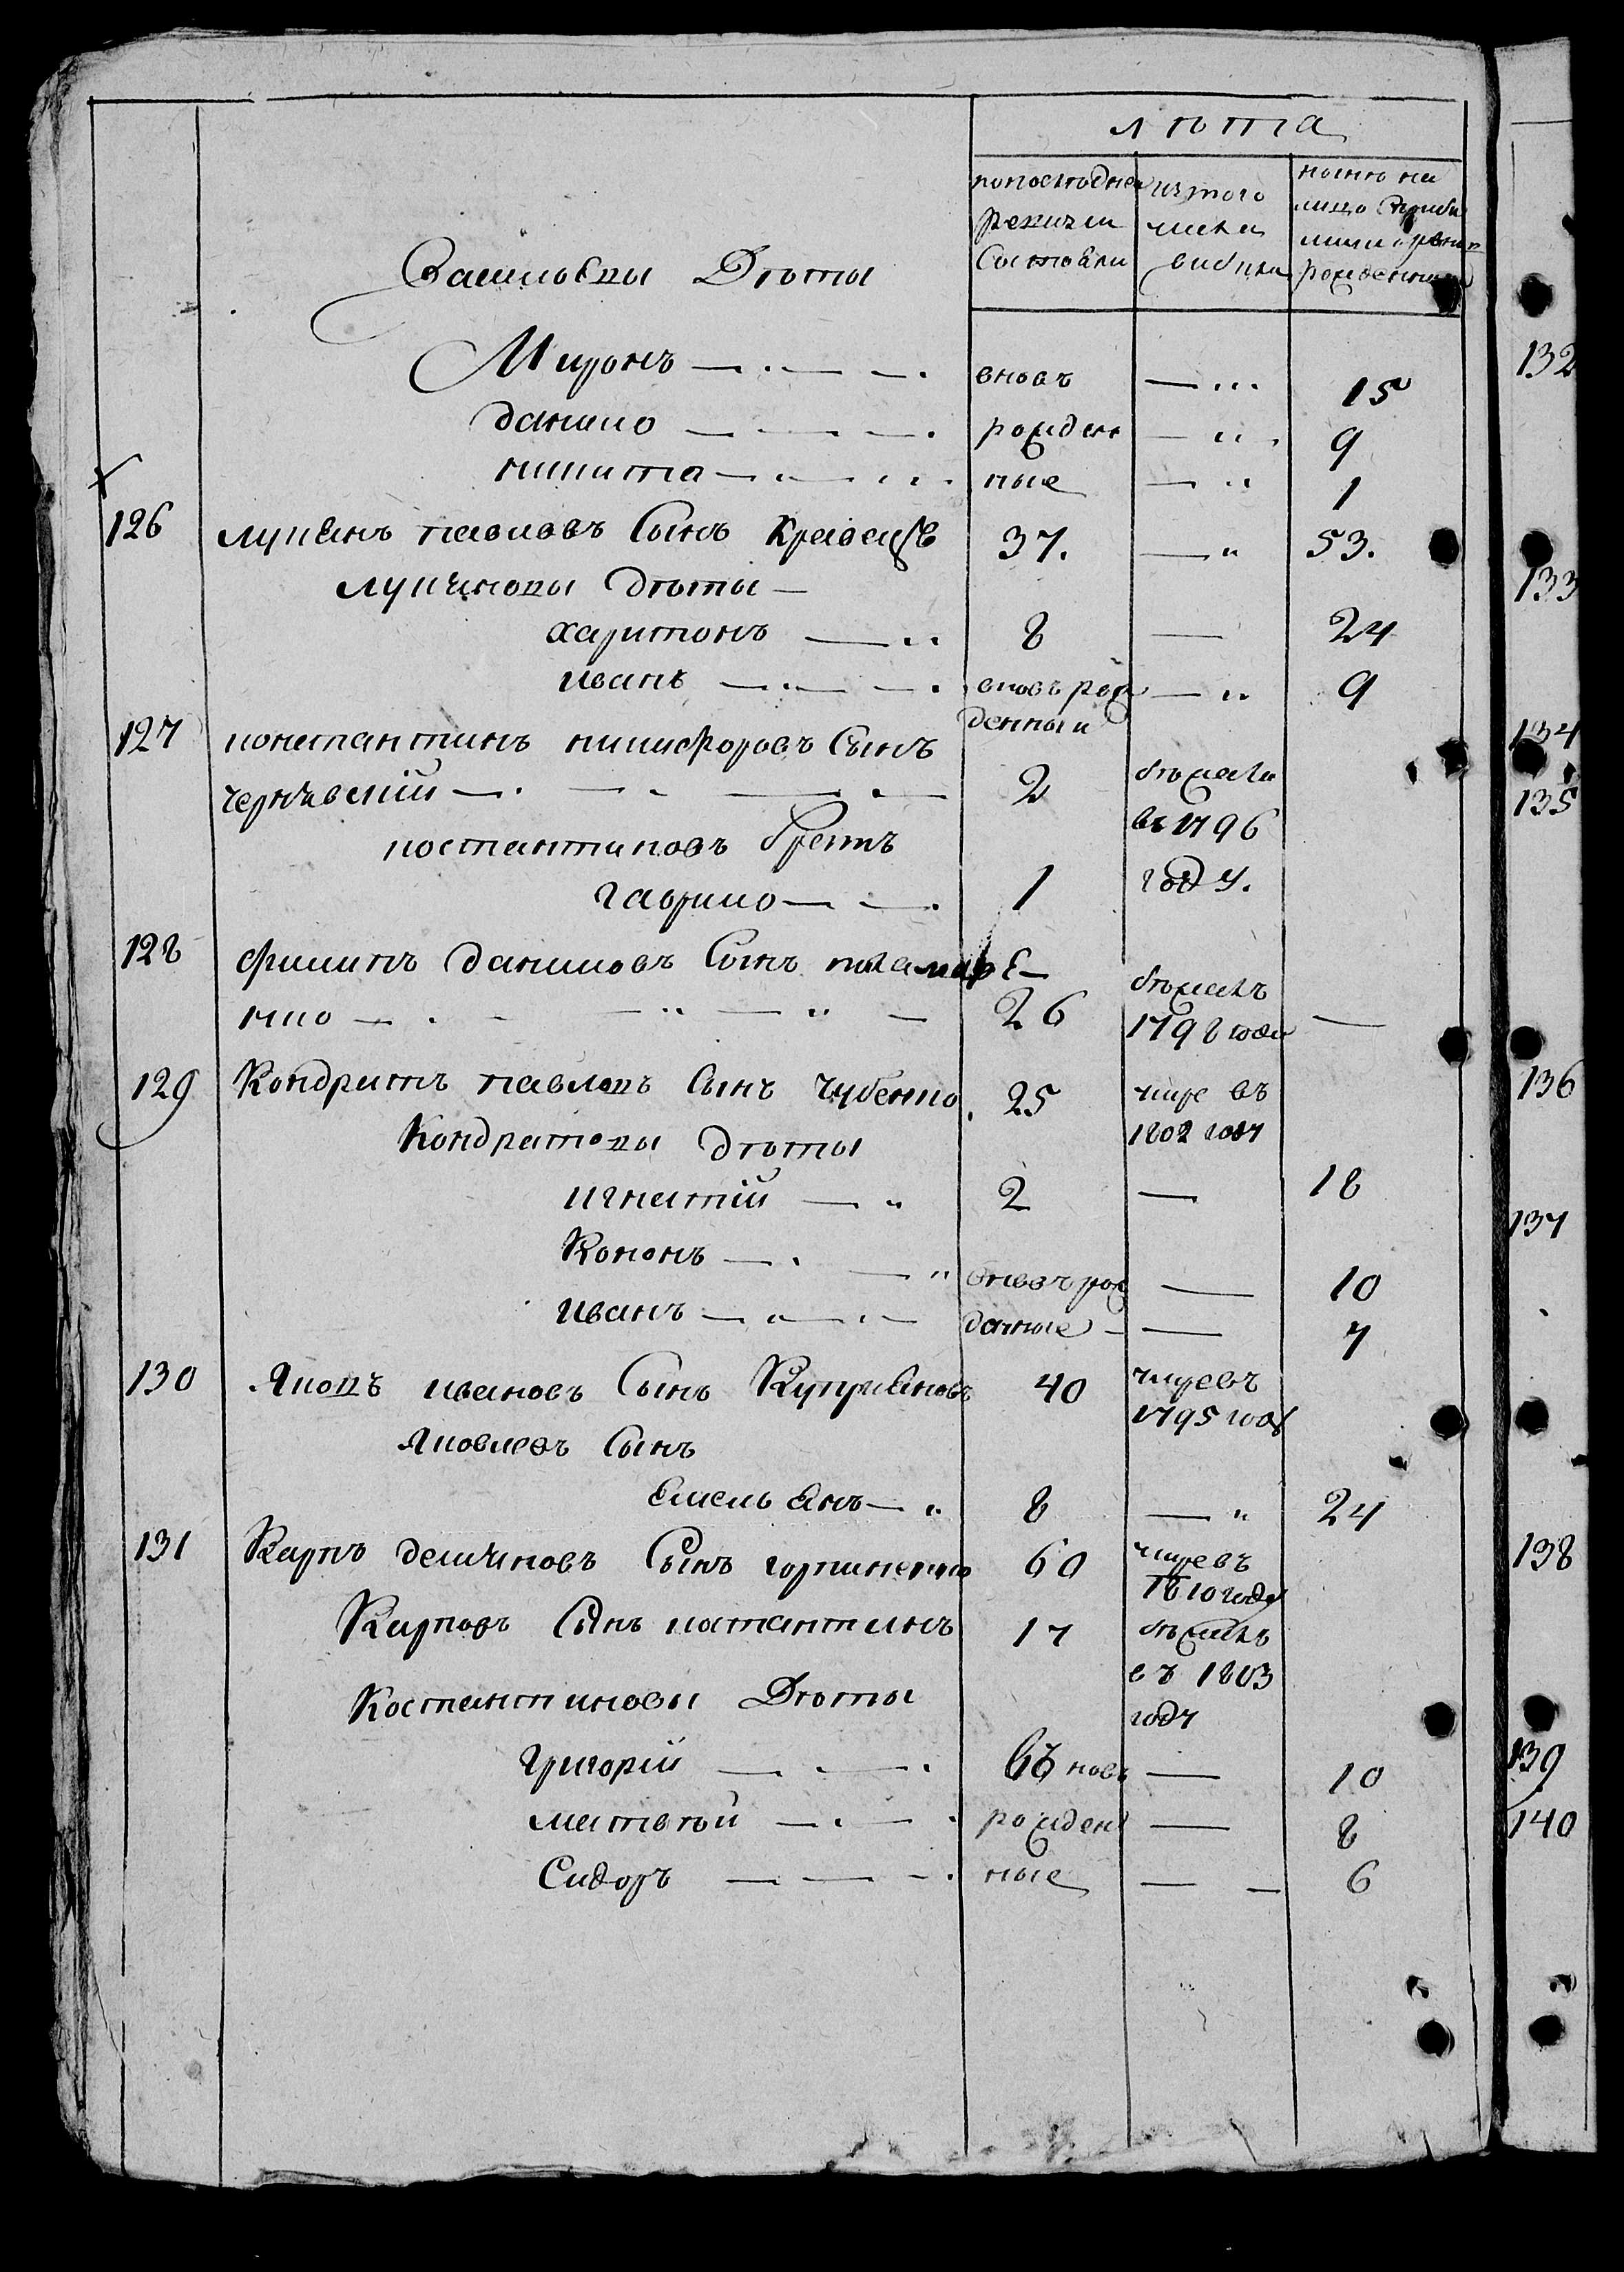 лѣта
попоследней изтого ныне на
ревизии числа лицо сприбы
Состояли выбыло лыми и вновь
рожденными
Василовы Дѣти
Миронъ вновъ 15
данило рожден 9
никита ные 1
126 лукянъ павловъ Сынъ Кравецъ 37. 53.
лукяновы дѣти
харитонъ 8 24
иванъ вновъ рож 9
денный
127 константинъ никифоровъ Сынъ
чернявский 2 бѣжали
въ 1796
костантиновъ братъ
гаврило 1 году.
128 филипъ даниловъ Сынъ бежалъ
нко 26 1798 года
129 Кондратъ павловъ Сынъ чубенко. 25 умре въ
1802 году
Кондратовы дѣти
игнатий 2 18
Кононъ вновъ рож 10
иванъ данные 7
130 Яковъ ивановъ Сынъ Куприяновъ 40 умре въ
1795 году
Яковлевъ Сынъ
Емельянъ 8 24
131 Карпъ демяновъ Сынъ горпиненко 60 умре въ
1810 году
Карповъ Сынъ костантинъ 17 бѣжалъ
въ 1803
Костантиновы Дѣти году
Григорий въновь 10
матвѣй рожден 8
Сидоръ ные 6
132
133
134
135
136
137
138
139
140